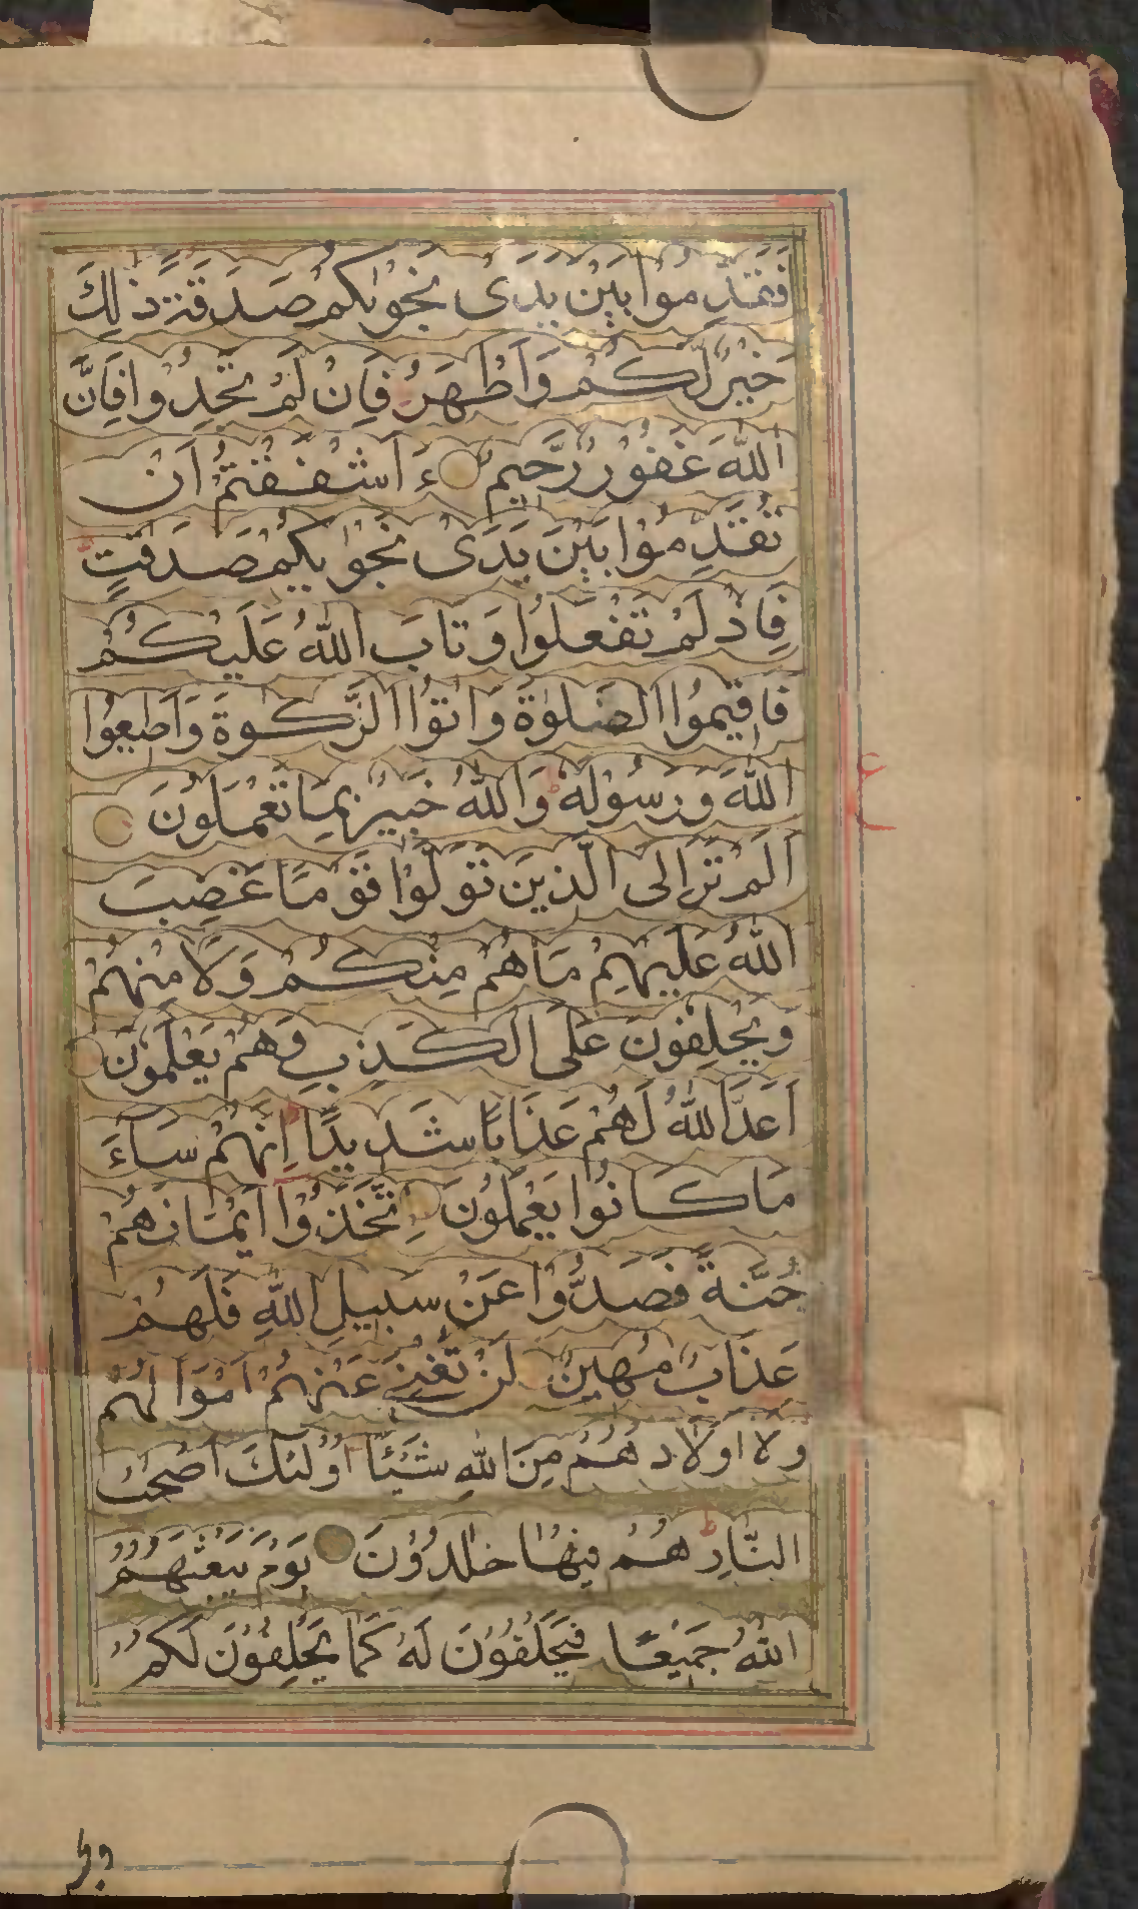 فَقَدِّمُوا بَيْنَ يَدَیْ نَجْوٰىكُمْ صَدَقَةً ذٰلِكَ
خَيْرٌ لَّكُمْ وَاَطْهَرُ فَاِنْ لَمْ تَجِدُوْا فَاِنَّ
اللّٰهَ غَفُوْرٌ رَّحِيْمٌ ءَاَشْفَقْتُمْ اَنْ
تُقَدِّمُوْا بَيْنَ يَدَیْ نَجْوٰىكُمْ صَدَقٰتٍ
فَاِذْ لَمْ تَفْعَلُوْا وَتَابَ اللّٰهُ عَلَيْكُمْ
فَاَقِيْمُوا الصَّلٰوةَ وَاٰتُوا الزَّكٰوةَ وَاَطِيْعُوا
اللّٰهَ وَرَسُوْلَهٗ وَاللّٰهُ خَبِيْرٌ بِمَا تَعْمَلُوْنَ
اَلَمْ تَرَ اِلَى الَّذِيْنَ تَوَلَّوْا قَوْمًا غَضِبَ
اللّٰهُ عَلَيْهِمْ مَا هُمْ مِنْكُمْ وَلَا مِنْهُمْ
وَيَحْلِفُوْنَ عَلَى الْكَذِبِ وَهُمْ يَعْلَمُوْنَ
اَعَدَّ اللّٰهُ لَهُمْ عَذَابًا شَدِيْدًا اِنَّهُمْ سَآءَ
مَا كَانُوْا يَعْمَلُوْنَ اِتَّخَذُوْا اَيْمَانَهُمْ
جُنَّةً فَصَدُّوْا عَنْ سَبِيْلِ اللّٰهِ فَلَهُمْ
عَذَابٌ مُهِيْنٌ لَنْ تُغْنِيَ عَنْهُمْ اَمْوَالُهُمْ
وَلَا اَوْلَادُهُمْ مِنَ اللّٰهِ شَيْئًا اُولٰئِكَ اَصْحٰبُ
النَّارِ هُمْ فِيْهَا خٰلِدُوْنَ يَوْمَ يَبْعَثُهُمُ
اللّٰهُ جَمِيْعًا فَيَحْلِفُوْنَ لَهٗ كَمَا يَحْلِفُوْنَ لَكُمْ